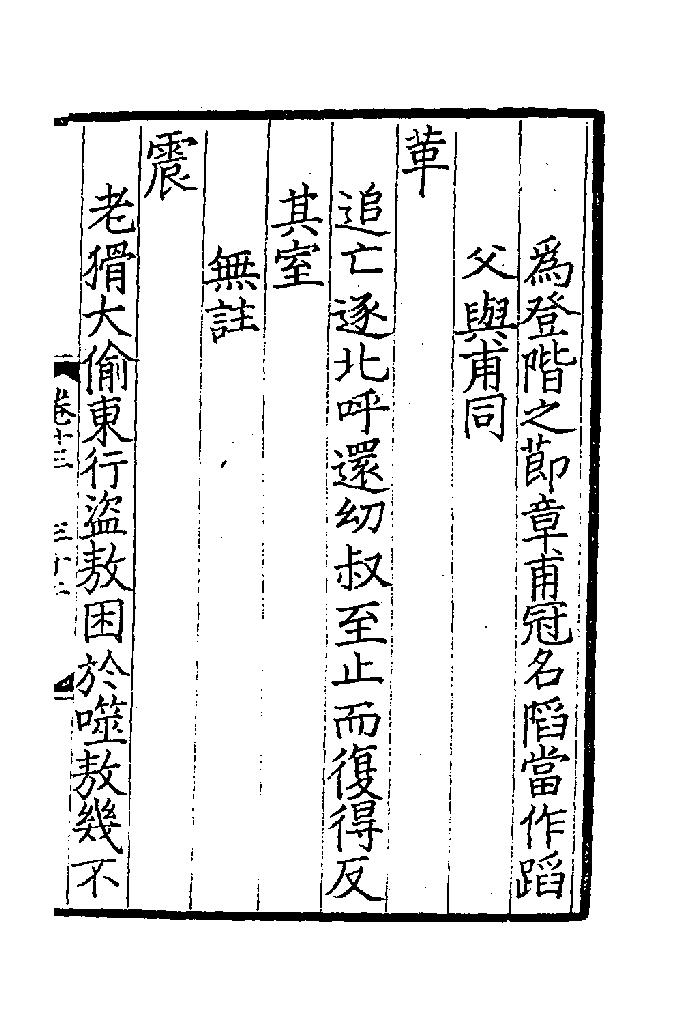 為登階之節章甫冠名䧟當作蹈
父與甫同
萆
追亡逐北呼還幼叔至止而復得反
其室
無註
震
老猾大偷東行盜敖困於噬敖幾不
卷十三 三十二